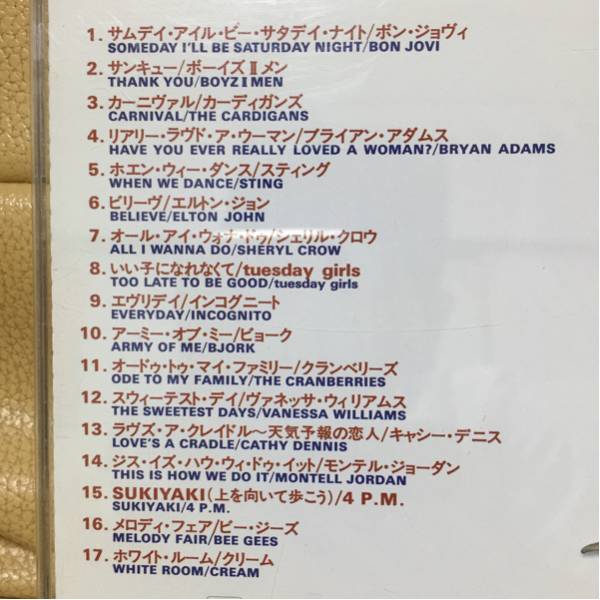 1. サムデイ・アイル・ビー・サタデイ・ナイト/ボン・ジョヴィ
SOMEDAY I'LL BE SATURDAY NIGHT/BON JOVI
2. サンキュー/ボーイズⅡメン
THANK YOU/BOYZⅡMEN
3. カーニヴァル/カーディガンズ
CARNIVAL/THE CARDIGANS
4. リアリー・ラヴド・ア・ウーマン/ブライアン・アダムス
HAVE YOU EVER REALLY LOVED A WOMAN?/BRYAN ADAMS
5. ホエン・ウィー・ダンス/スティング
WHEN WE DANCE/STING
6. ビリーヴ/エルトン・ジョン
BELIEVE/ELTON JOHN
7. オール・アイ・ウォナ・ドゥ/シェリル・クロウ
ALL I WANNA DO/SHERYL CROW
8. いい子になれなくて/tuesday girls
TOO LATE TO BE GOOD/tuesday girls
9. エヴリデイ/インコグニート
EVERYDAY/INCOGNITO
10. アーミー・オブ・ミー/ビョーク
ARMY OF ME/BJORK
11. オードゥ・トゥ・マイ・ファミリー/クランベリーズ
ODE TO MY FAMILY/THE CRANBERRIES
12. スウィーテスト・デイ/ヴァネッサ・ウィリアムス
THE SWEETEST DAYS/VANESSA WILLIAMS
13. ラヴズ・ア・クレイドル〜天気予報の恋人/キャシー・デニス
LOVE'S A CRADLE/CATHY DENNIS
14. ジス・イズ・ハウ・ウィ・ドゥ・イット/モンテル・ジョーダン
THIS IS HOW WE DO IT/MONTELL JORDAN
15. SUKIYAKI(上を向いて歩こう)/4 P.M.
SUKIYAKI/4 P.M.
16. メロディ・フェア/ビー・ジーズ
MELODY FAIR/BEE GEES
17. ホワイト・ルーム/クリーム
WHITE ROOM/CREAM